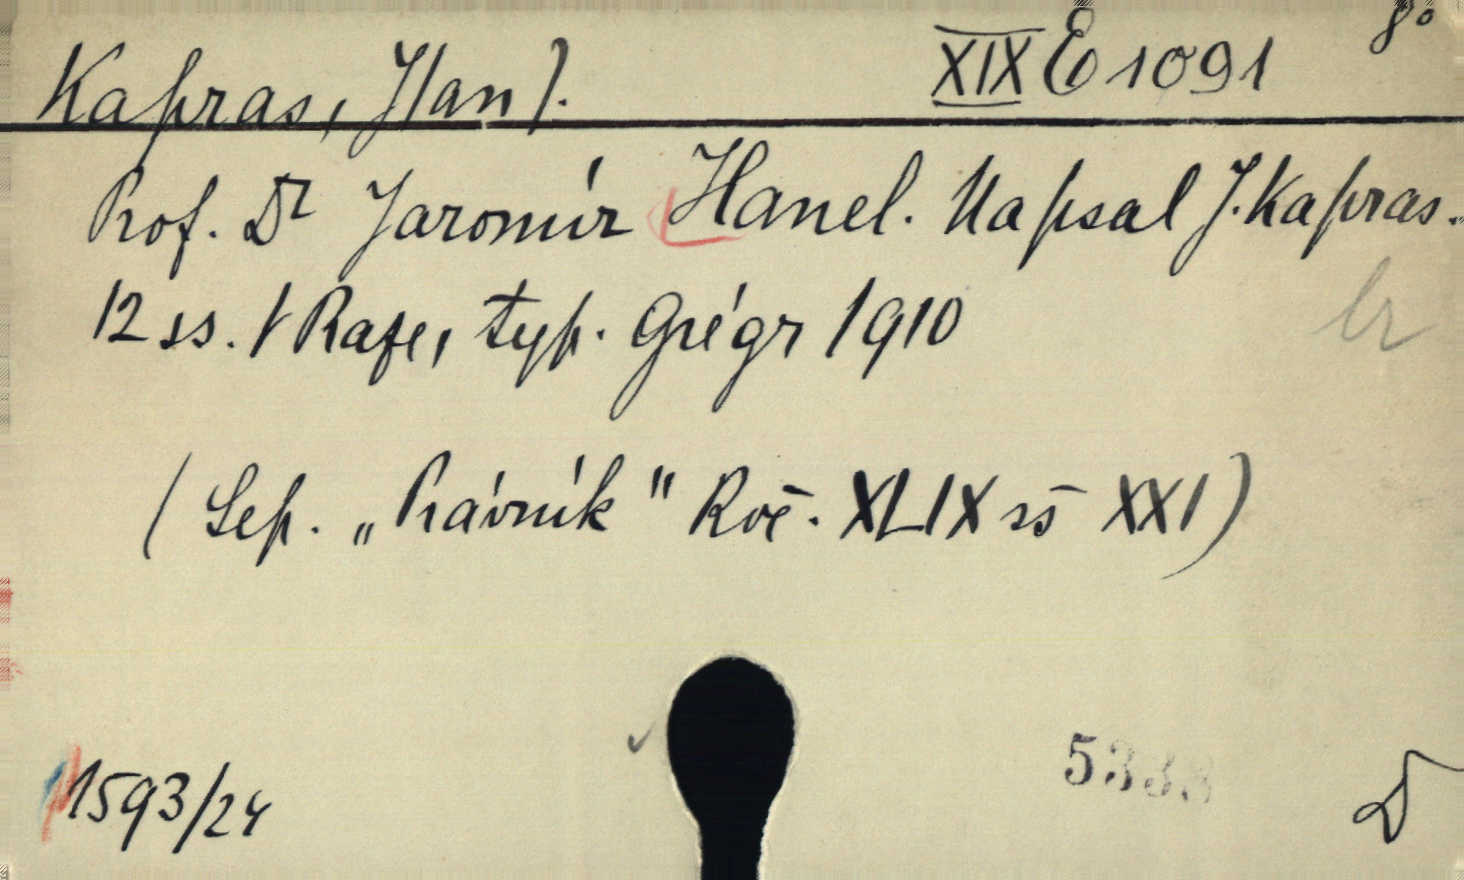 Kapras, J(an). XIX E 1091 8°
Prof. Dr Jaromír Hanel. Napsal J. Kapras.
12 ss. V Praze, typ. Grégr 1910
(Sep. „Právník" Roč. XLIX sš XXI)
1593/24 5338